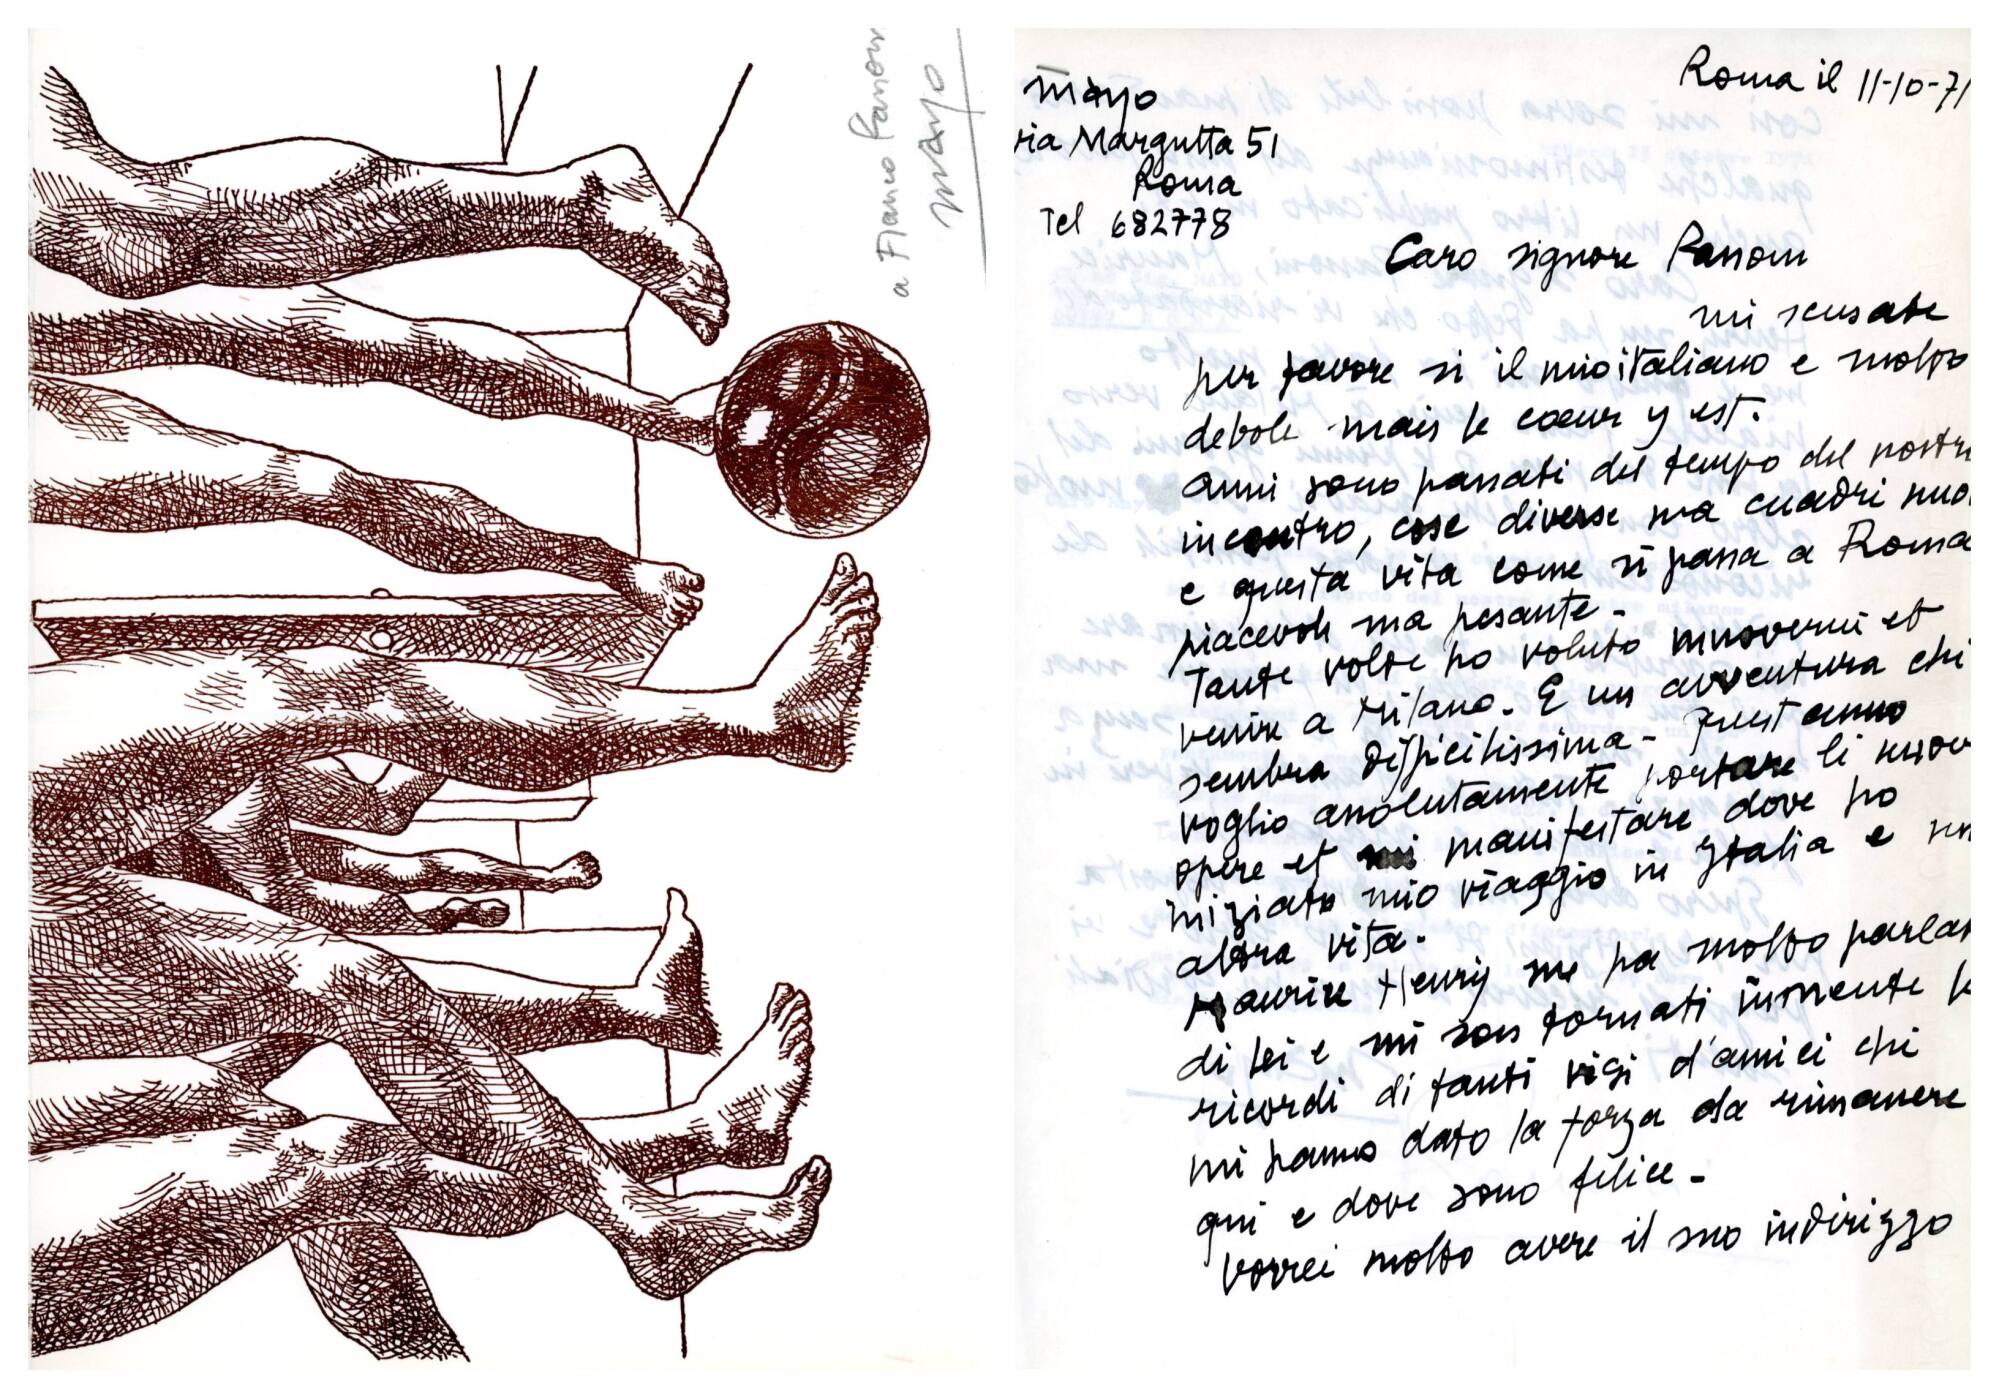 a Franco Passoni
mayo
mayo
via Margutta 51
Roma
Tel 682778
Roma il 11-10-71
Caro signore Passoni
mi scusate
per favore si il mio italiano e molto
debole mais le coeur y est.
anni sono passati del tempo del nostr
incontro, cose diverse ma cuadri nuo
e questa vita come si passa a Roma
piacevole ma pesante -
Tante volte ho voluto muovermi et
venire a Milano. E un avventura chi
sembra difficilissima - quest anno
voglio assolutamente portare li nuov
opere et mi manifestare dove ho
iniziato mio viaggio in Italia e un
altra vita.
Maurice Henry me ha molto parlat
di lei e mi son tornati in mente
ricordi di tanti visi d'amici chi
mi hanno dato la forza da rimanere
qui e dove sono felice -
Vorrei molto avere il suo indirizzo